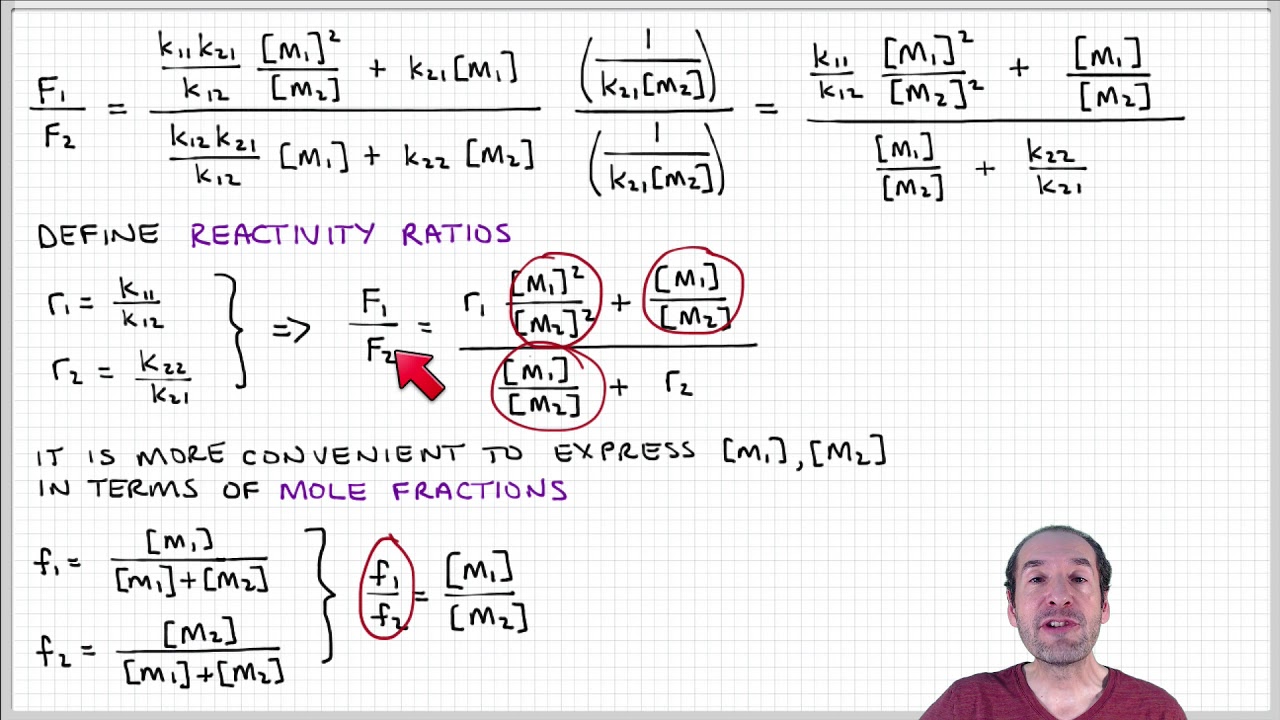 F₁/F₂ = (k₁₁k₂₁/k₁₂ [M₁]²/[M₂] + k₂₁[M₁]) / (k₁₂k₂₁/k₁₂ [M₁] + k₂₂ [M₂]) (1/k₂₁[M₂]) / (1/k₂₁[M₂]) = (k₁₁/k₁₂ [M₁]²/[M₂]² + [M₁]/[M₂]) / ([M₁]/[M₂] + k₂₂/k₂₁)
DEFINE REACTIVITY RATIOS
r₁ = k₁₁/k₁₂
r₂ = k₂₂/k₂₁
} => F₁/F₂ = (r₁ [M₁]²/[M₂]² + [M₁]/[M₂]) / ([M₁]/[M₂] + r₂)
IT IS MORE CONVENIENT TO EXPRESS [M₁], [M₂]
IN TERMS OF MOLE FRACTIONS
f₁ = [M₁]/([M₁]+[M₂])
f₂ = [M₂]/([M₁]+[M₂])
} f₁/f₂ = [M₁]/[M₂]